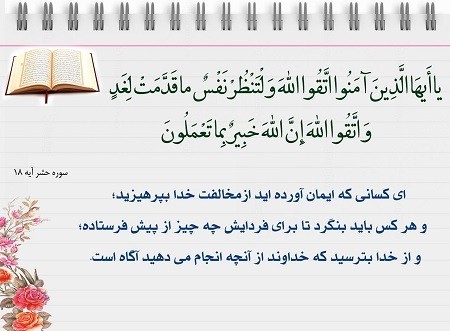 يا أَيهَا الَّذِينَ آمَنُوا اتَّقُوا اللَّهَ وَلْتَنْظُرْ نَفْسٌ ما قَدَّمَتْ لِغَدٍ
وَ اتَّقُوا اللَّهَ إِنَّ اللَّهَ خَبِيرٌ بِما تَعْمَلُونَ
سوره حشر آیه ۱۸
ای کسانی که ایمان آورده اید از مخالفت خدا بپرهیزید؛
و هر کس باید بنگرد تا برای فردایش چه چیز از پیش فرستاده؛
و از خدا بترسید که خداوند از آنچه انجام می دهید آگاه است.